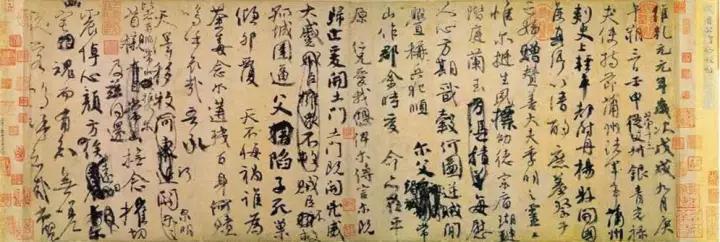 維乾元元年歲次戊戌九月庚
午朔三日壬申第十三叔銀青光祿
夫使持節蒲州諸軍事蒲州
刺史上輕車都尉丹楊縣開國
侯真卿以清酌庶羞祭于
亡姪贈贊善大夫季明之靈曰
惟爾挺生夙標幼德宗廟瑚璉
階庭蘭玉每慰
人心方期戩穀何圖逆賊閒
釁稱兵犯順爾父竭誠常
山作郡余時受命亦在平
原仁兄愛我俾爾傳言爾既
歸止爰開土門土門既開凶威
大蹙賊臣不救
孤城圍逼父陷子死巢
傾卵覆天不悔禍誰為
荼毒念爾遘殘百身何贖
嗚乎哀哉吾承
天澤移牧河關泉明
比者再陷常山攜爾
首櫬及茲同還撫念摧切
震悼心顏方俟
魂而有知無嗟